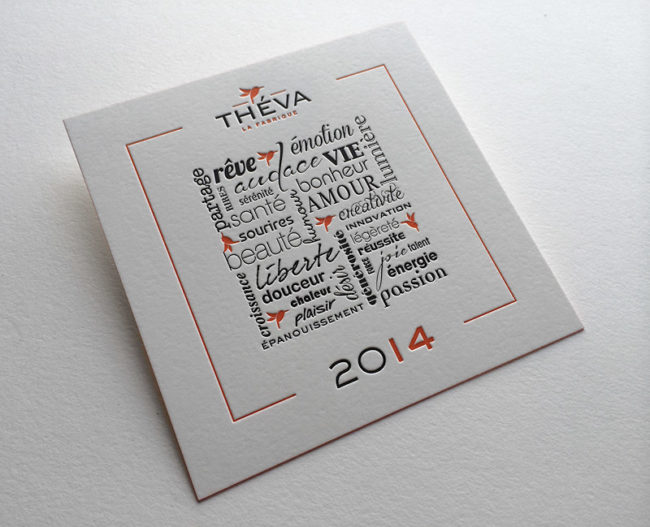 THÉVA
LA FABRIQUE
partage
rêve
émotion
lumière
audace
VIE
RIRES
sérénité
bonheur
santé
humour
AMOUR
sourires
créativité
INNOVATION
beauté
légèreté
liberté
générosité
réussite
croissance
douceur
désir
joie
talent
chaleur
énergie
plaisir
passion
ÉPANOUISSEMENT
2014